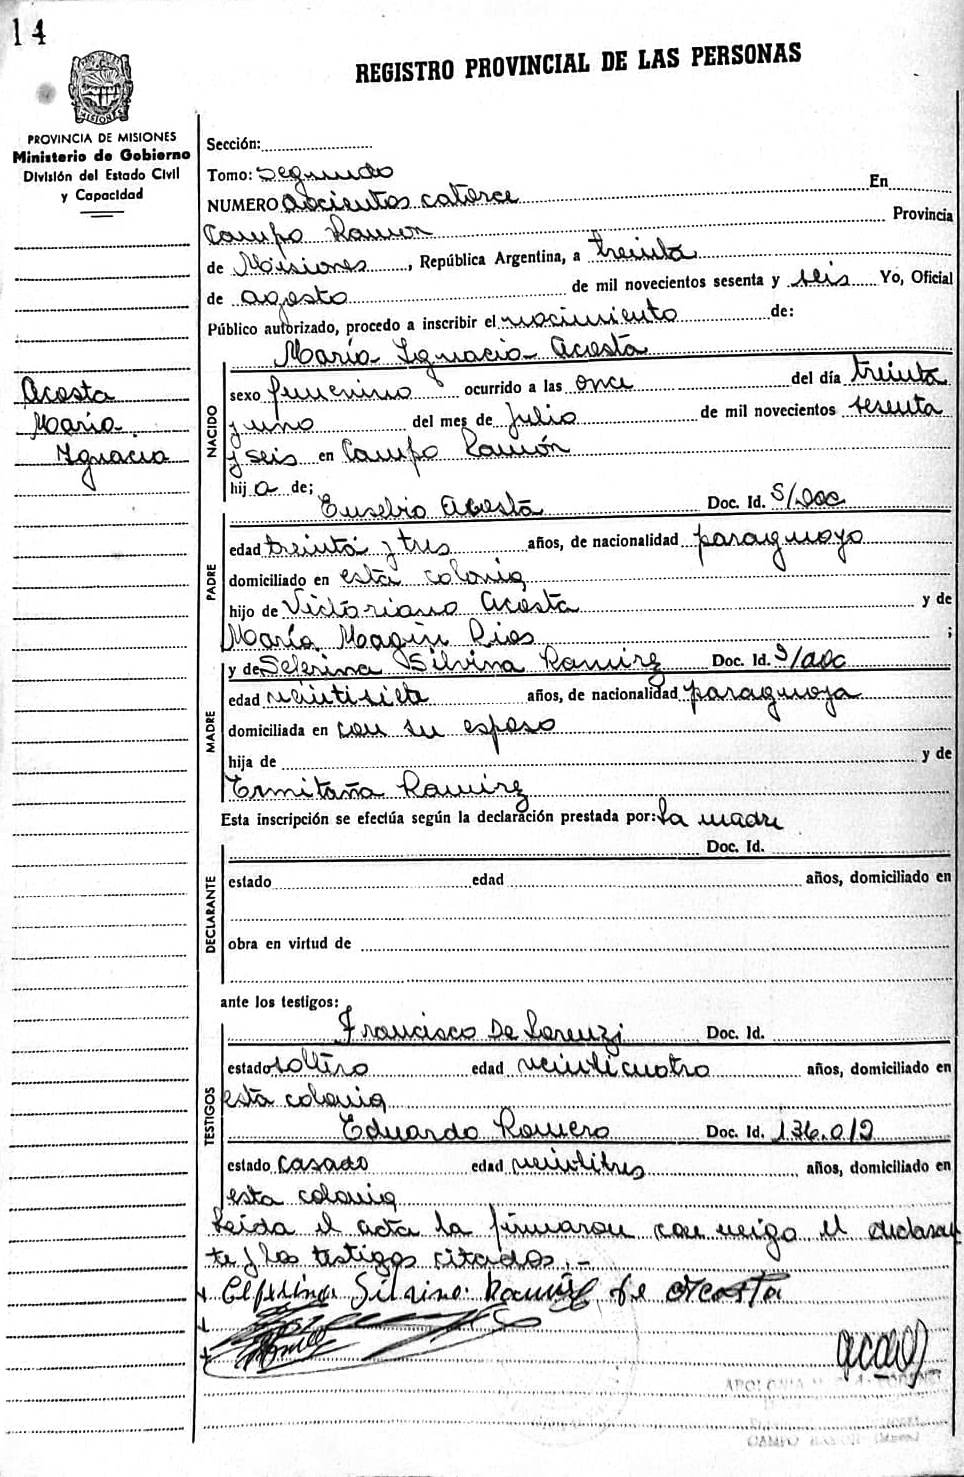 14
REGISTRO PROVINCIAL DE LAS PERSONAS
PROVINCIA DE MISIONES
Ministerio de Gobierno
División del Estado Civil
y Capacidad
Acosta
María
Ignacia
Sección:
Tomo: Segundo
NUMERO doscientos catorce En
Campo Ramon Provincia
de Misiones, República Argentina, a treinta
de agosto de mil novecientos sesenta y seis Yo, Oficial
Público autorizado, procedo a inscribir el nacimiento de:
María Ignacia Acosta
NACIDO
sexo femenino ocurrido a las once del día treinta
y uno del mes de Julio de mil novecientos sesenta
y seis en Campo Ramón
hija de;
Eusebio Acosta Doc. Id. S/Doc
PADRE
edad treinta y tres años, de nacionalidad paraguayo
domiciliado en esta colonia
hijo de Victoriano Acosta y de
María Magin Rios ;
y de Seferina Silvina Ramirez Doc. Id. S/doc
MADRE
edad veintisiete años, de nacionalidad paraguaya
domiciliada en con su esposo
hija de y de
Ermitaña Ramirez
Esta inscripción se efectúa según la declaración prestada por: La madre
Doc. Id.
DECLARANTE
estado edad años, domiciliado en
obra en virtud de
ante los testigos:
Francisco De Lorenzi Doc. Id.
TESTIGOS
estado soltero edad veinticuatro años, domiciliado en
esta colonia
Eduardo Romero Doc. Id. 136.012
estado casado edad veintitres años, domiciliado en
esta colonia
Leida el acta la firmaron con migo el declaran
te y los testigos citados.-
Silvina Ramirez de Acosta
CAMPO RAMON